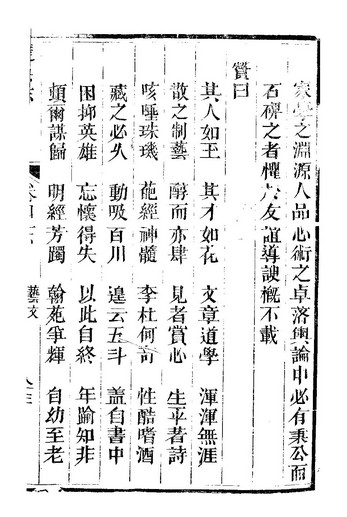 家學之淵源人品心術之卓落輿論中必有秉公而
石碑之者懼於友誼導諛概不載
贊曰
其人如玉 其才如花 文章道學 渾渾無涯
散之制藝 醇而亦肆 見者賞心 生平著詩
咳唾珠璣 葩經神髓 李杜何奇 性酷嗜酒
藏之必久 動吸百川 遑云五斗 蓋自書中
困抑英雄 忘懷得失 以此自終 年踰知非
頓爾謀歸 明經芳躅 翰苑爭輝 自幼至老
藝文